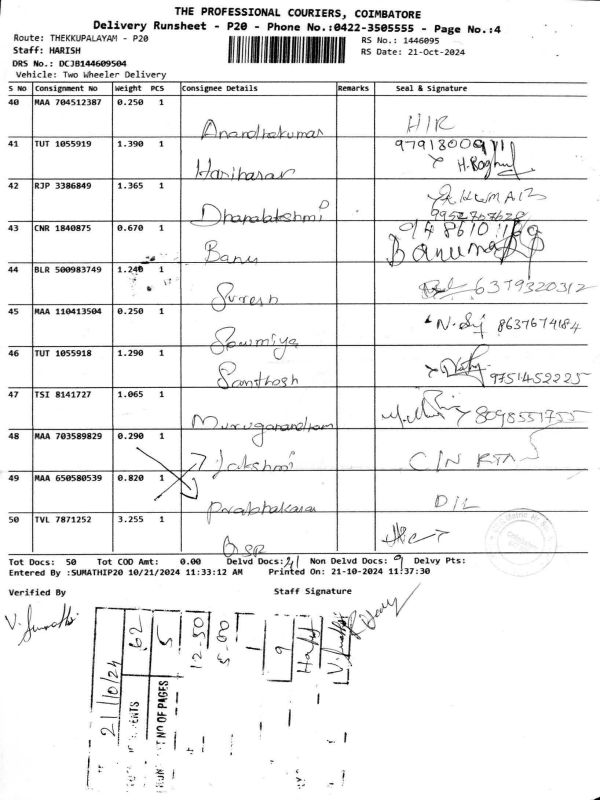 THE PROFESSIONAL COURIERS, COIMBATORE
Delivery Runsheet - P20 - Phone No.:0422-3505555 - Page No.:4
Route: THEKKUPALAYAM - P20 RS No.: 1446095
Staff: HARISH RS Date: 21-Oct-2024
DRS No.: DCJB144609504
Vehicle: Two Wheeler Delivery
S No Consignment No Weight PCS Consignee Details Remarks Seal & Signature
40 MAA 704512387 0.250 1
Anandhakumar H/R
41 TUT 1055919 1.390 1 9791300911
Hariharan H.Raghul
42 RJP 3386849 1.365 1
Dhanalakshmi 9952767628
43 CNR 1840875 0.670 1
Banu Banuma
44 BLR 500983749 1.240 1
Suresh 6379320312
45 MAA 110413504 0.250 1
Sowmiya 8637674184
46 TUT 1055918 1.290 1
Santhosh 9751452225
47 TSI 8141727 1.065 1
Muruganandham 8098551755
48 MAA 703589829 0.290 1
Lakshmi C/N RTA
49 MAA 650580539 0.820 1
Prabhakaran D/L
50 TVL 7871252 3.255 1
GSR
Tot Docs: 50 Tot COD Amt: 0.00 Delvd Docs: 41 Non Delvd Docs: 9 Delvy Pts:
Entered By :SUMATHIP20 10/21/2024 11:33:12 AM Printed On: 21-10-2024 11:37:30
Verified By Staff Signature
V. Sumathi
21/10/24
62
NO OF PAGES 5
12-50
5-00
1
9
Hari
V. Sumathi